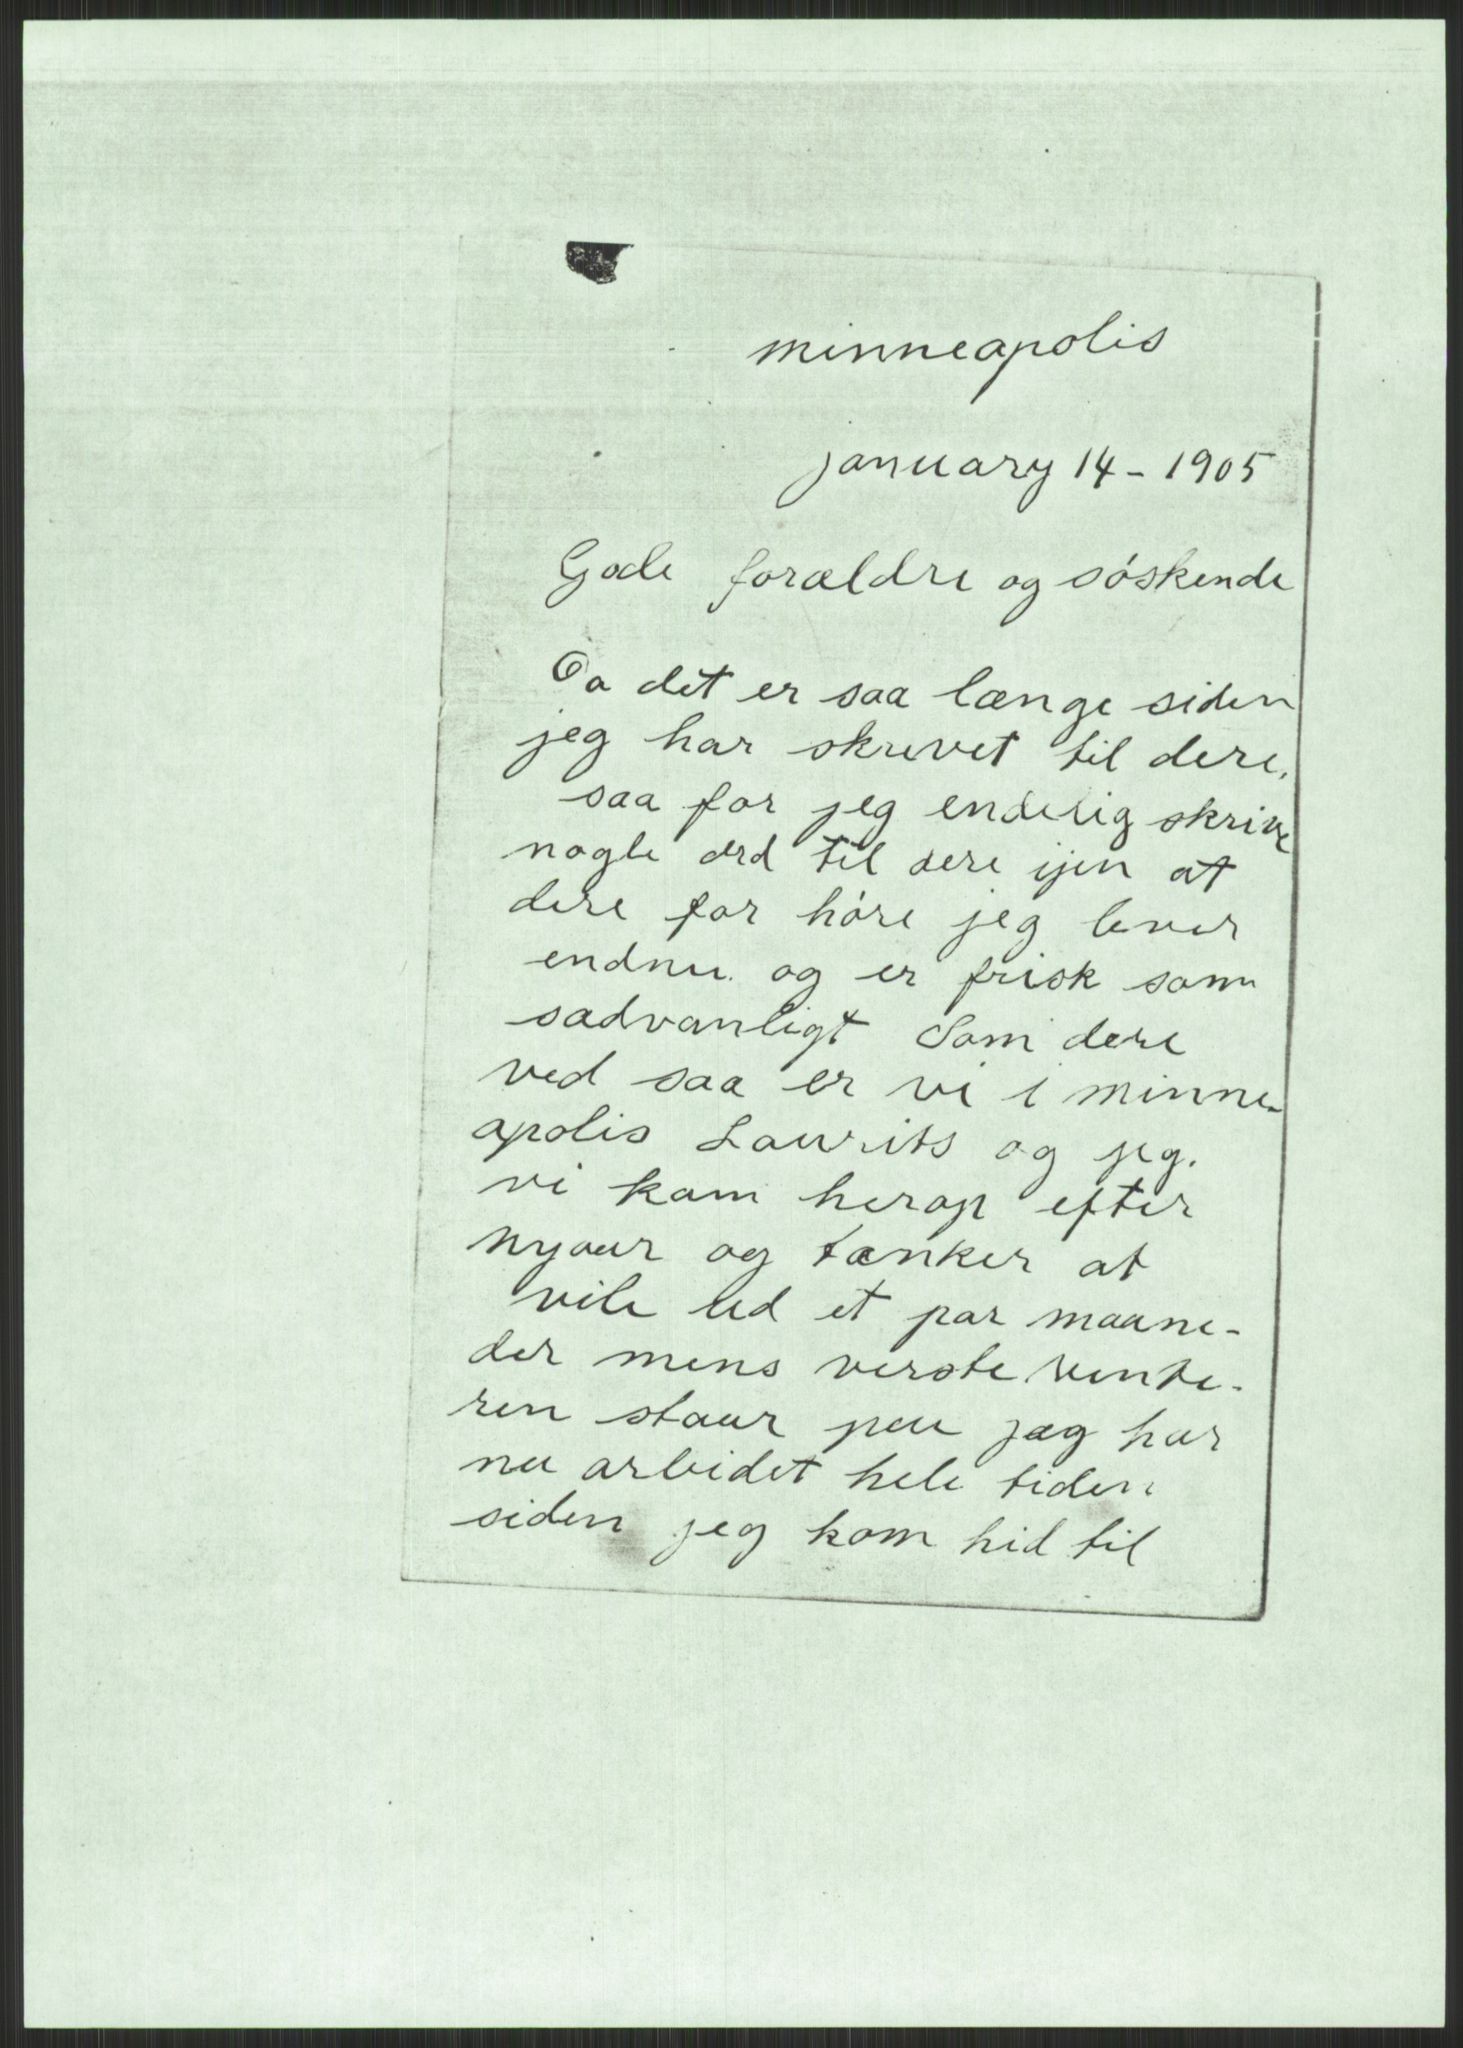 minneapolis
january 14 - 1905
Gode forældre og söskende
Da det er saa længe siden
jeg har skrevet til dere,
saa for jeg endelig skrive
nogle ord til dere ijen at
dere for höre jeg lever
endnu. og er frisk som
sædvanligt Som dere
ved saa er vi i minne-
apolis Laurits og jeg.
vi kom herop efter
nyaar og tænker at
vile ud et par maane-
der mens verste vente-
ren staar paa jæg har
nu arbeidet hele tiden
siden jeg kom hid til